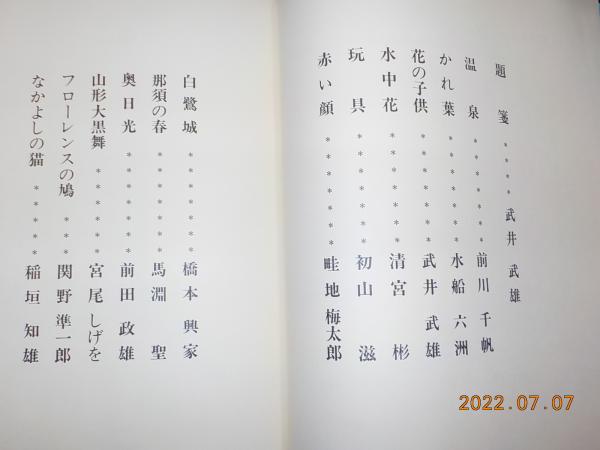 題箋 * * * * 武井武雄
温泉 * * * * * * * 前川千帆
かれ葉 * * * * * * * 水船六洲
花の子供 * * * * * * * 武井武雄
水中花 * * * * * * * 清宮彬
玩具 * * * * * * * * 初山滋
赤い顔 * * * * * * * * 畦地梅太郎
白鷺城 * * * * * * * 橋本興家
那須の春 * * * * * * * 馬淵聖
奥日光 * * * * * * * 前田政雄
山形大黒舞 * * * * * * 宮尾しげを
フローレンスの鳩 * * * 関野凖一郎
なかよしの猫 * * * * * 稲垣知雄
2022.07.07